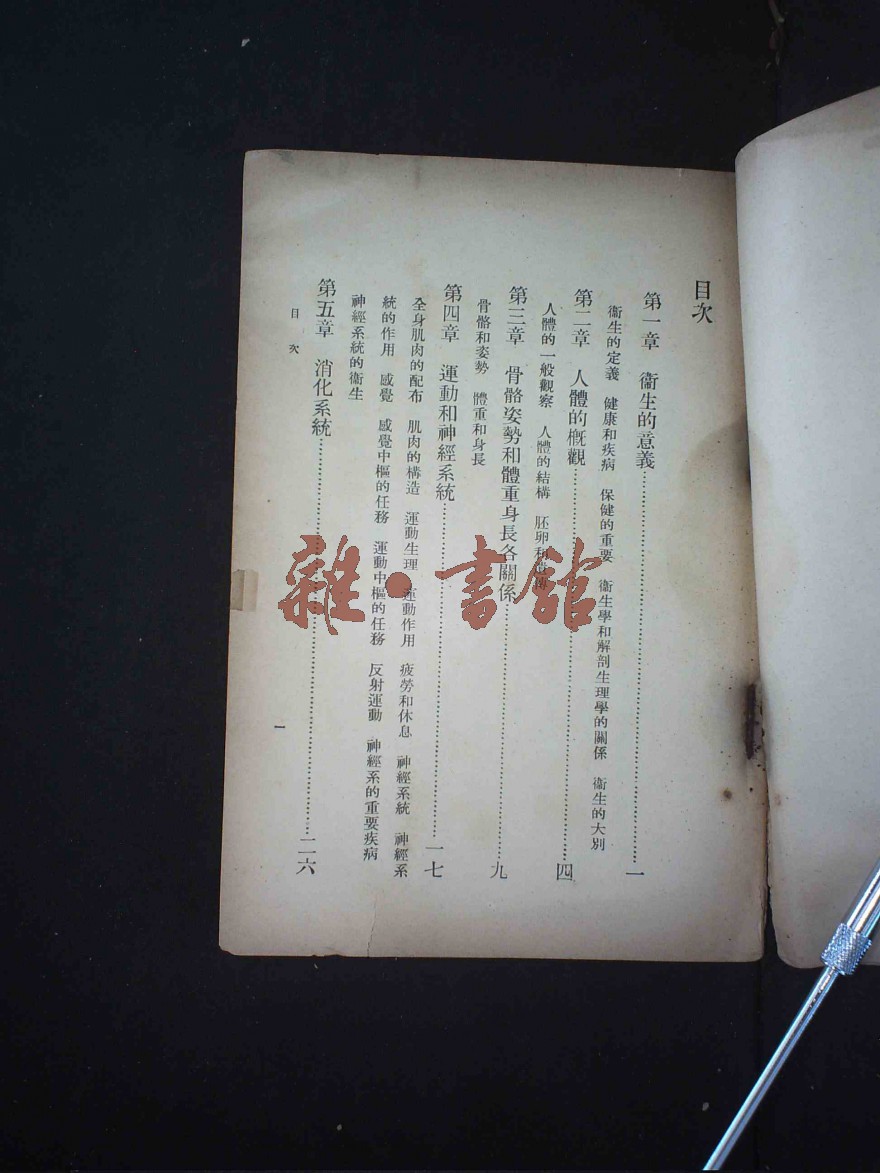 目次
第一章　衞生的意義……一
衞生的定義　健康和疾病　保健的重要　衞生學和解剖生理學的關係　衞生的大別
第二章　人體的槪觀……四
人體的一般觀察　人體的結構　胚卵和
第三章　骨骼姿勢和體重身長各關係……九
骨骼和姿勢　體重和身長
第四章　運動和神經系統……一七
全身肌肉的配布　肌肉的構造　運動生理　運動作用　疲勞和休息　神經系統　神經系
統的作用　感覺　感覺中樞的任務　運動中樞的任務　反射運動　神經系的重要疾病
神經系統的衞生
第五章　消化系統……二六
目次
一
雜·書館